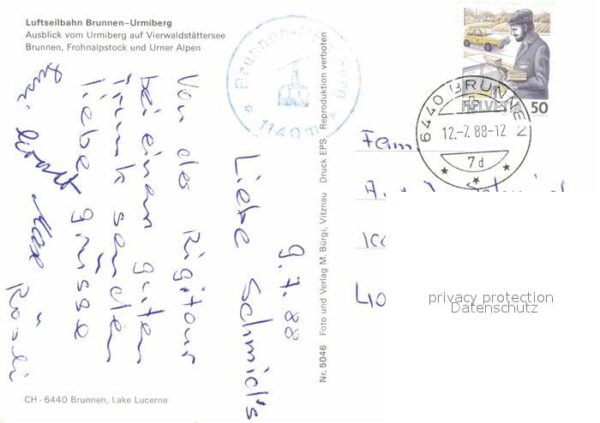 Luftseilbahn Brunnen–Urmiberg
Ausblick vom Urmiberg auf Vierwaldstättersee
Brunnen, Frohnalpstock und Urner Alpen
9.7.88
Liebe Schmid's
Von der Rigitour
bei einem guten
Trunk senden
liebe Grüsse
Max
Rösli
CH - 6440 Brunnen, Lake Lucerne
Nr. 5046 Foto und Verlag M. Bürgi, Vitznau Druck EPS Reproduktion verboten
Brunnen-Urmiberg
1140m
HELVETIA 50
6440 BRUNNEN
12.-7.88-12
7d
Fam.
40
privacy protection
Datenschutz